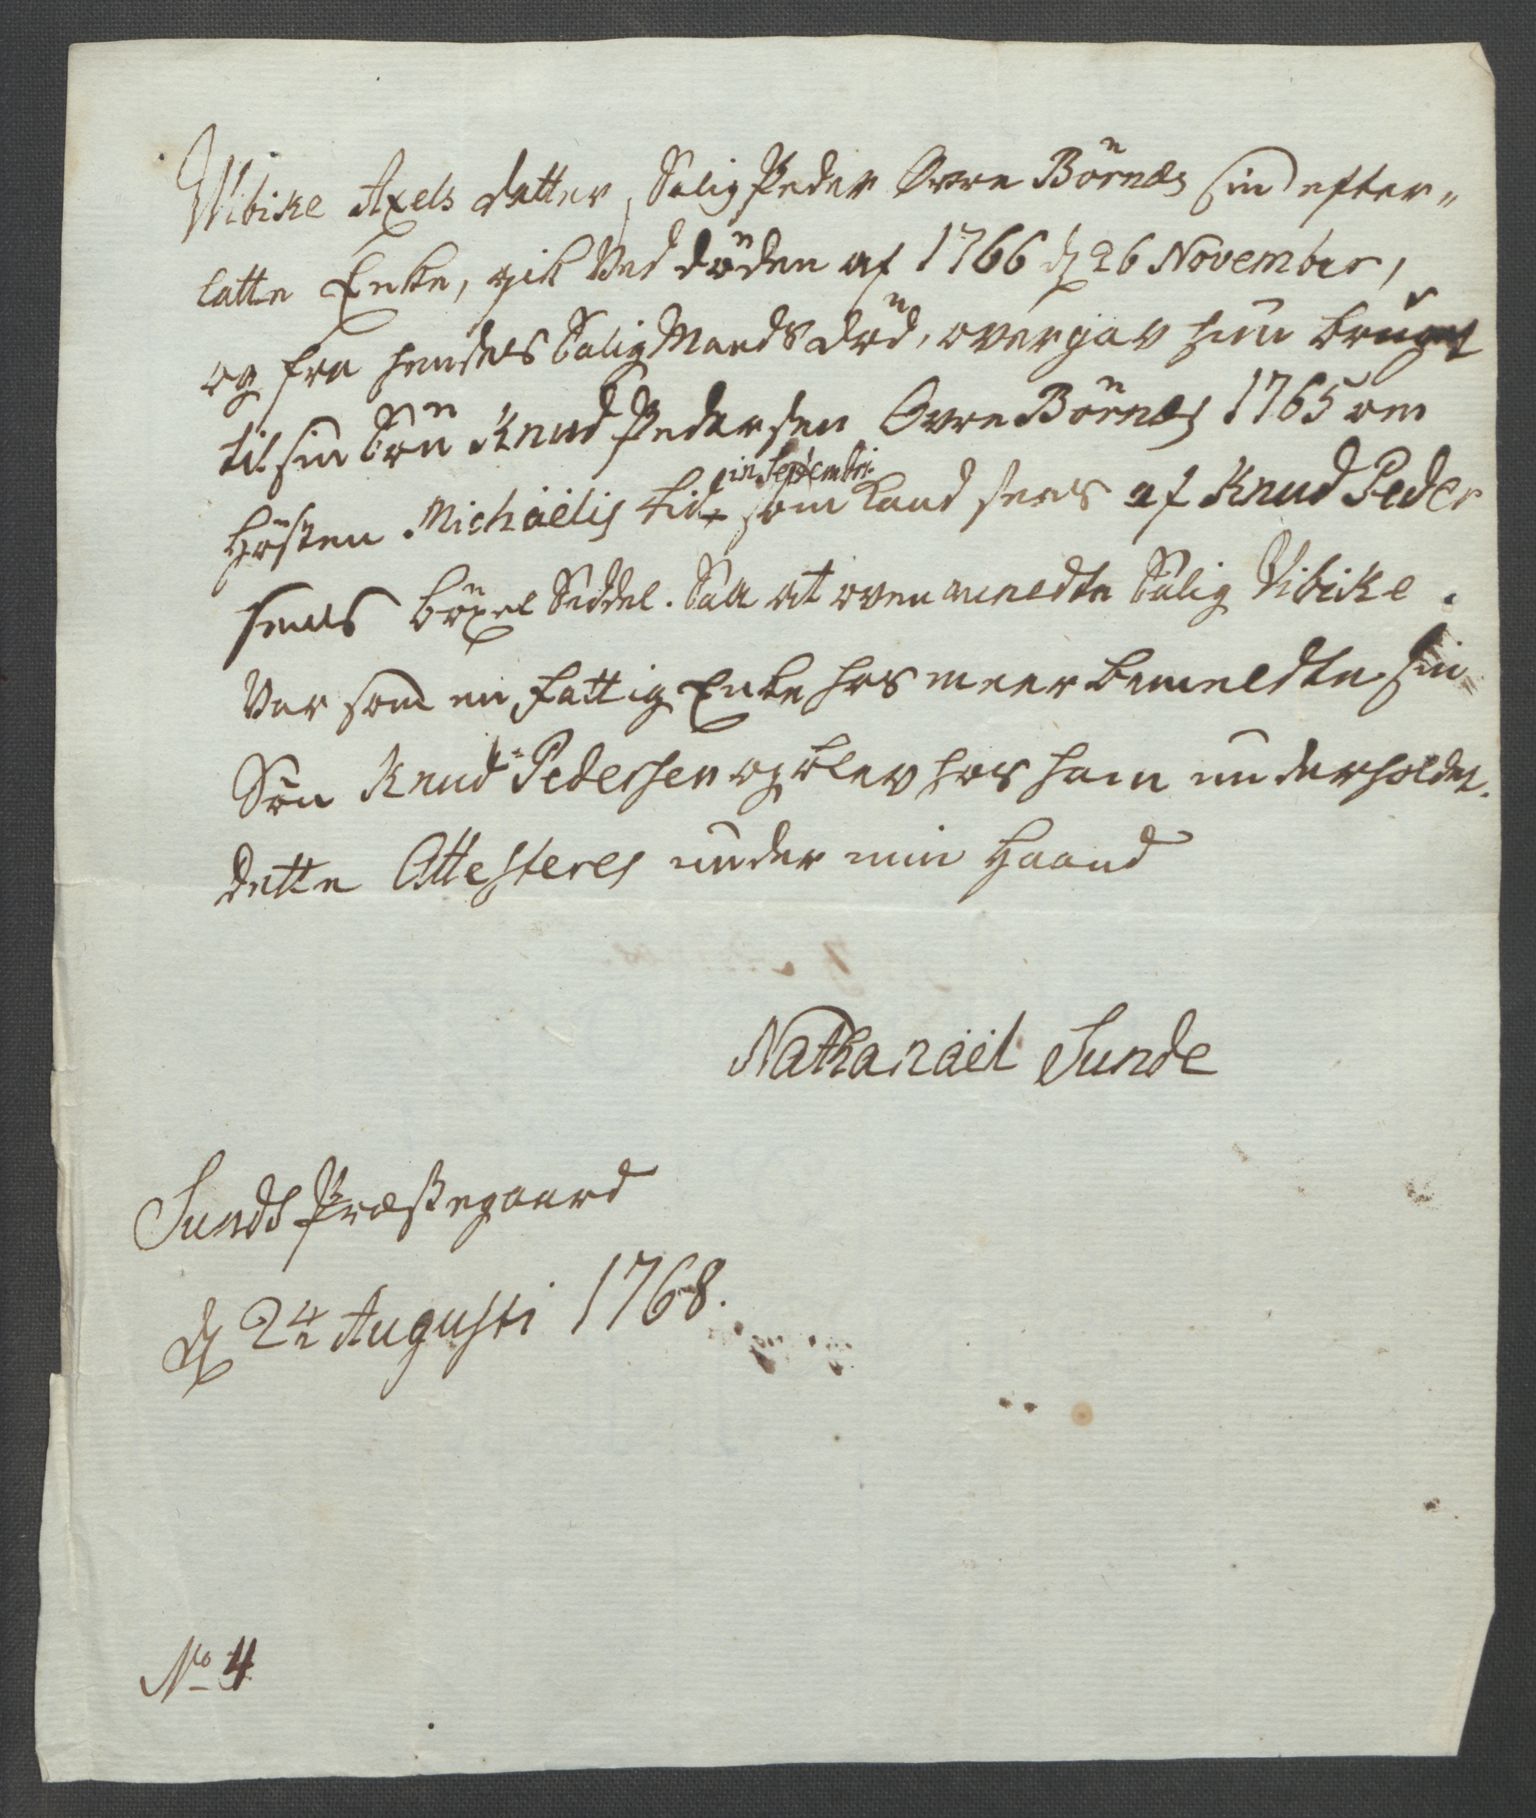 Wibike Axels datter, Salig Peder Øvre Börnæs sin efter„
latte Enke, gik Ved döden af 1766 d 26 November,
og fra hendes Salig Mands död, overgav hun bruget
til sin Sön Knud Pedersen Øvre Börnæs 1765 om
Hösten Michaëlis tid in Septembri som Laud seer af Knud Peder
sens böxel Seddel. Saa at ovenmeldte Salig Vibike
Var som en fattig Enke hos meerbemeldte sin
Sön Knud Pedersen og blev hos ham underholdet.
Dette Attesteres under min Haand
Nathanaël Sunde
Sunds Præstegaard
d 24 Augusti 1768.
No 4